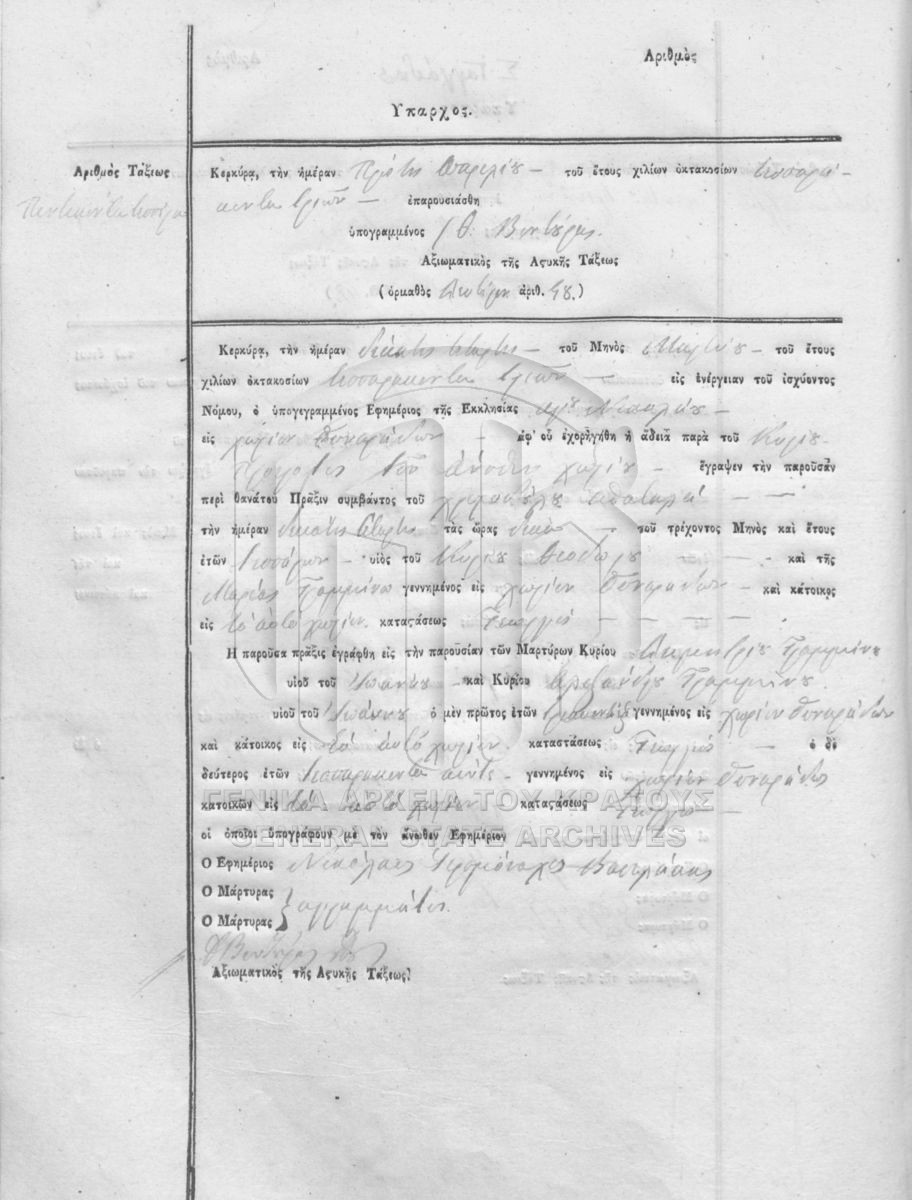 Αριθμὸς
Υπαρχος.
Αριθμὸς Τάξεως
Πεντήκοντα τέσσερα
Κερκύρα, τὴν ἡμέραν Πρώτη Απριλίου — τοῦ ἔτους χιλίων ὀκτακοσίων τεσσαρά-
κοντα τριῶν — ἐπαρουσιάσθη
ὑπογραμμένος Βεντούρας.
Αξιωματικὸς τῆς Αςυκῆς Τάξεως
(ὁρμαθὸς ἀριθ. )
Κερκύρα, τὴν ἡμέραν δεκάτη τετάρτη — τοῦ Μηνὸς Μαρτίου — τοῦ ἔτους
χιλίων ὀκτακοσίων τεσσαράκοντα τριῶν — εἰς ἐνέργειαν τοῦ ἰσχύοντος
Νόμου, ὁ ὑπογεγραμμένος Εφημέριος τῆς Εκκλησίας αγίου Νικολάου —
εἰς χωρίον Συναράδων — ἀφ' οὗ ἐχορηγήθη ἡ ἄδεια παρὰ τοῦ Κυρίου
τοῦ άνωθεν χωρίου — ἔγραψεν τὴν παροῦσαν
περὶ θανάτου Πρᾶξιν συμβάντος τοῦ
τὴν ἡμέραν δεκάτη τετάρτη τὰς ὥρας δέκα — τοῦ τρέχοντος Μηνὸς καὶ ἔτους
ἐτῶν τεσσάρων — υἱὸς τοῦ Κυρίου Θεοδώρου — καὶ τῆς
Μαρίας Γραμμένου γεννημένος εἰς χωρίον Συναράδων — καὶ κάτοικος
εἰς το αυτό χωρίον. καταςάσεως Γεωργός — — — —
Η παροῦσα πρᾶξις ἐγράφθη εἰς τὴν παρουσίαν τῶν Μαρτύρων Κυρίου Δημητρίου Γραμμένου
υἱοῦ τοῦ Ιωάννου — καὶ Κυρίου Αλεξάνδρου Γραμμένου
υἱοῦ τοῦ Ιωάννου ὁ μὲν πρῶτος ἐτῶν γεννημένος εἰς χωρίον Συναράδων
καὶ κάτοικος εἰς το αυτό χωρίον. καταστάσεως Γεωργός — ὁ δὲ
δεύτερος ἐτῶν τεσσαράκοντα πέντε — γεννημένος εἰς χωρίον Συναράδων
κατοικῶν εἰς το αυτό χωρίον καταςάσεως Γεωργός —
οἱ ὁποῖοι ὑπογράφουν μὲ τὸν ἄνωθεν Εφημέριον
Ο Εφημέριος Νικόλαος Ιερομόναχος Βασιλάκης
Ο Μάρτυρας
Ο Μάρτυρας } αγράμματοι.
Βεντούρας
Αξιωματικὸς τῆς Αςυκῆς Τάξεως
ΓΕΝΙΚΑ ΑΡΧΕΙΑ ΤΟΥ ΚΡΑΤΟΥΣ
GENERAL STATE ARCHIVES